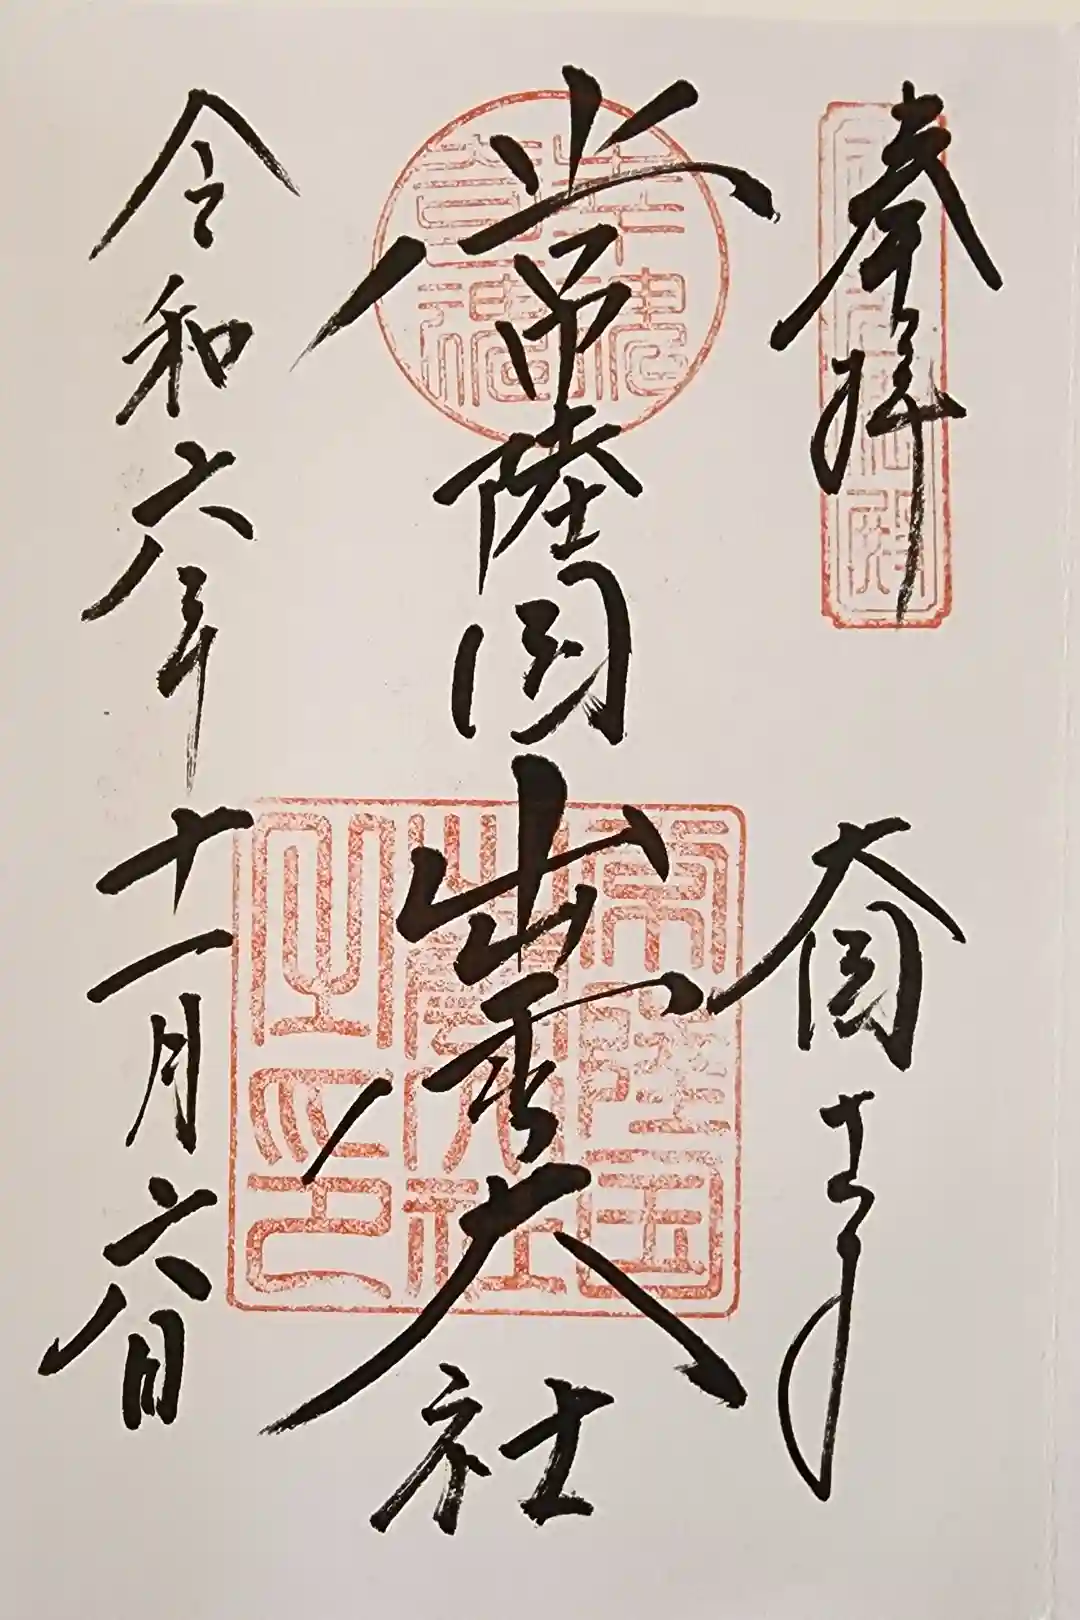 奉拝
大国
常陸国出雲大社
令和六年十一月六日
幸魂
奇魂
常陸国
出雲大社
之印